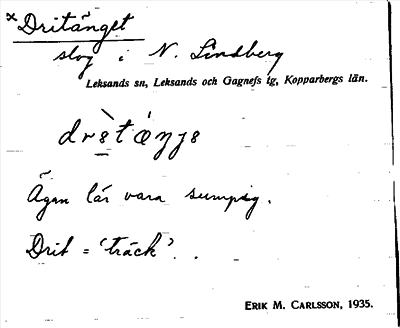 ×Dritänget
slog i N. Lindberg
Leksands sn, Leksands och Gagnefs tg, Kopparbergs län.
drìtáŋje
Ägan lär vara sumpig.
Drit = 'träck'.
ERIK M. CARLSSON, 1935.